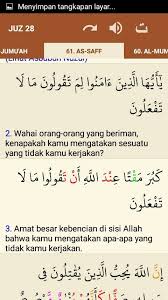 Menyimpan tangkapan layar...
JUZ 28
JUMU'AH
61. AS-SAFF
60. AL-MUM
(Lihat Asbabun Nuzul)
يَٰٓأَيُّهَا الَّذِينَ ءَامَنُوا لِمَ تَقُولُونَ مَا لَا
تَفْعَلُونَ
2. Wahai orang-orang yang beriman,
kenapakah kamu mengatakan sesuatu
yang tidak kamu kerjakan?
كَبُرَ مَقْتًا عِندَ اللَّهِ أَن تَقُولُوا مَا لَا
تَفْعَلُونَ
3. Amat besar kebencian di sisi Allah
bahwa kamu mengatakan apa-apa yang
tidak kamu kerjakan.
إِنَّ اللَّهَ يُحِبُّ الَّذِينَ يُقَاتِلُونَ فِي